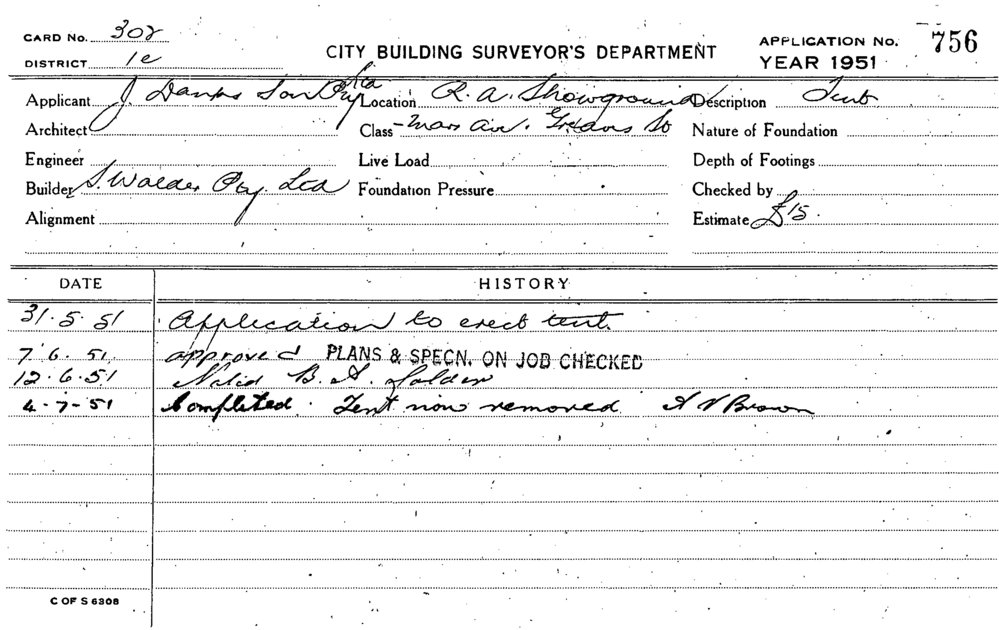 CARD No. 302
DISTRICT 1e
CITY BUILDING SURVEYOR'S DEPARTMENT
APPLICATION No. 756
YEAR 1951
Applicant J. Danks Son Pty Ltd Location R. A. Showground Description Tent
Architect Class Nature of Foundation
Engineer Live Load Depth of Footings
Builder S. Walder Pty. Ltd Foundation Pressure Checked by
Alignment Estimate £15.
DATE HISTORY
31.5.51 Application to erect tent.
7.6.51. approved PLANS & SPECN. ON JOB CHECKED
12.6.51 B. A.
4-7-51 Completed. Tent now removed A V Brown
C OF S 6308